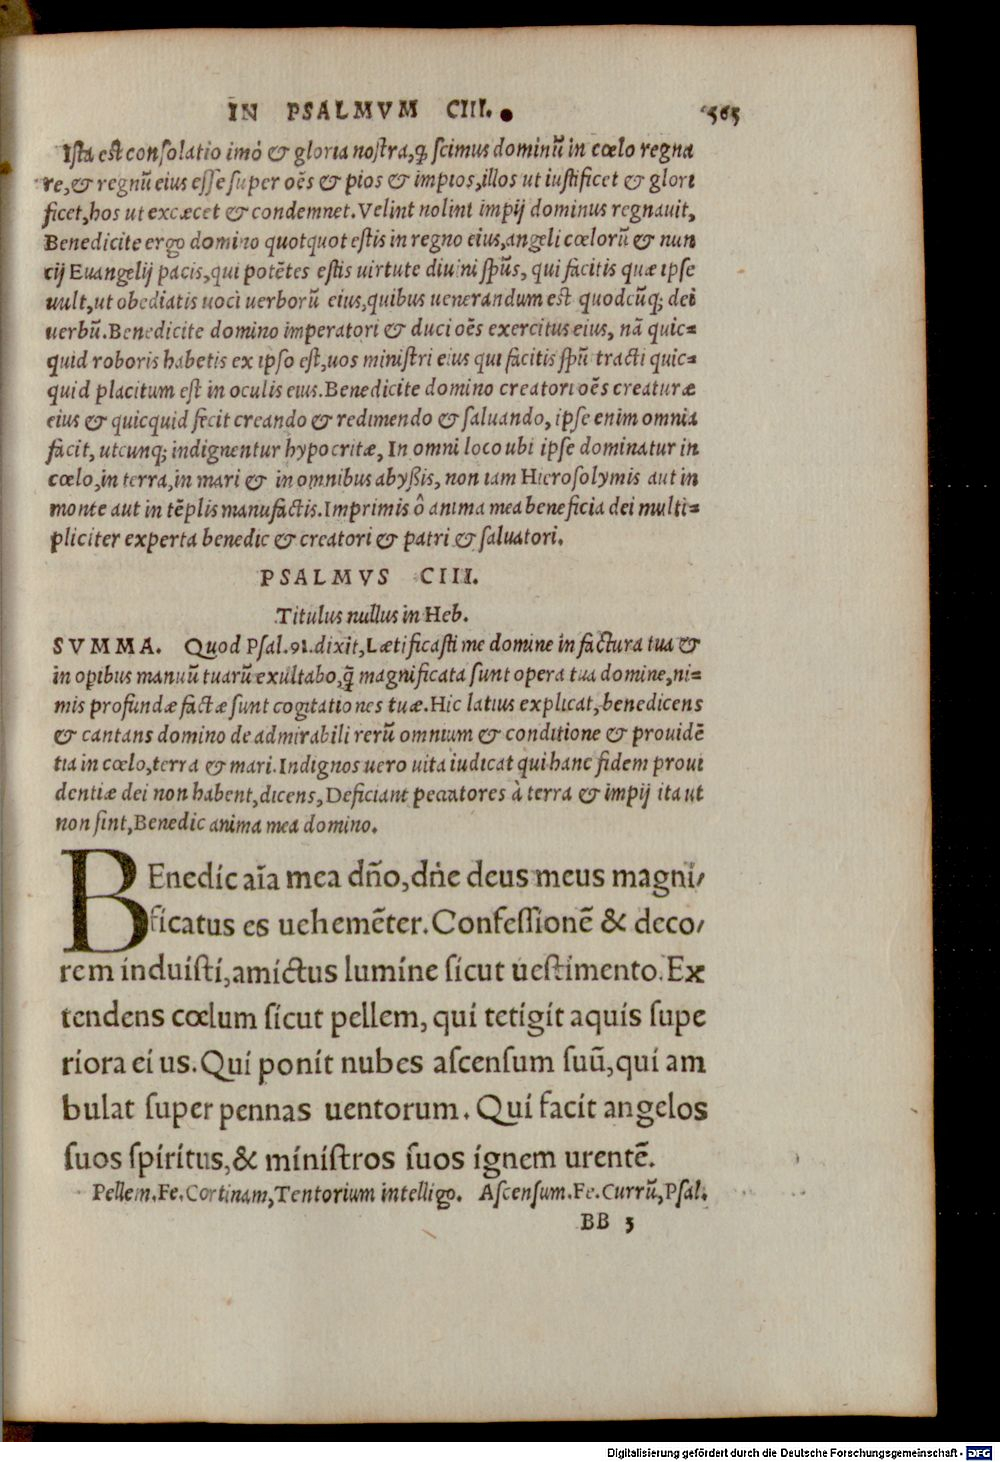 IN PSALMVM CIII.
565
Ista est consolatio imò & gloria nostra, ꝙ scimus dominũ in cœlo regna
re, & regnũ eius esse super oẽs & pios & impios, illos ut iustificet & glori
ficet, hos ut excæcet & condemnet. Velint nolint impij dominus regnauit,
Benedicite ergo domino quotquot estis in regno eius, angeli cœlorũ & nun
cij Euangelij pacis, qui potẽtes estis uirtute diuini sp̃us, qui facitis quæ ipse
uult, ut obediatis uoci uerborũ eius, quibus uenerandum est quodcũq; dei
uerbũ. Benedicite domino imperatori & duci oẽs exercitus eius, nã quic=
quid roboris habetis ex ipso est, uos ministri eius qui facitis sp̃u tracti quic=
quid placitum est in oculis eius. Benedicite domino creatori oẽs creaturæ
eius & quicquid fecit creando & redimendo & saluando, ipse enim omnia
facit, utcunq; indignentur hypocritæ, In omni loco ubi ipse dominatur in
cœlo, in terra, in mari & in omnibus abyßis, non iam Hierosolymis aut in
monte aut in tẽplis manufactis. Imprimis ô anima mea beneficia dei multi=
pliciter experta benedic & creatori & patri & saluatori.
PSALMVS CIII.
Titulus nullus in Heb.
SVMMA. Quod Psal. 91. dixit, Lætificasti me domine in factura tua &
in opibus manuũ tuarũ exultabo, q̃ magnificata sunt opera tua domine, ni=
mis profundæ factæ sunt cogitationes tuæ. Hic latius explicat, benedicens
& cantans domino de admirabili rerũ omnium & conditione & prouidẽ
tia in cœlo, terra & mari. Indignos uero uita iudicat qui hanc fidem proui
dentiæ dei non habent, dicens, Deficiant peccatores à terra & impij ita ut
non sint, Benedic anima mea domino.
BEnedic aĩa mea dño, dñe deus meus magni/
ficatus es uehemẽter. Confessionẽ & deco/
rem induisti, amictus lumine sicut uestimento. Ex
tendens cœlum sicut pellem, qui tetigit aquis supe
riora ei us. Qui ponit nubes ascensum suũ, qui am
bulat super pennas uentorum. Qui facit angelos
suos spiritus, & ministros suos ignem urentẽ.
Pellem. Fe. Cortinam, Tentorium intelligo. Ascensum. Fe. Currũ, Psal.
BB 3
Digitalisierung gefördert durch die Deutsche Forschungsgemeinschaft - DFG